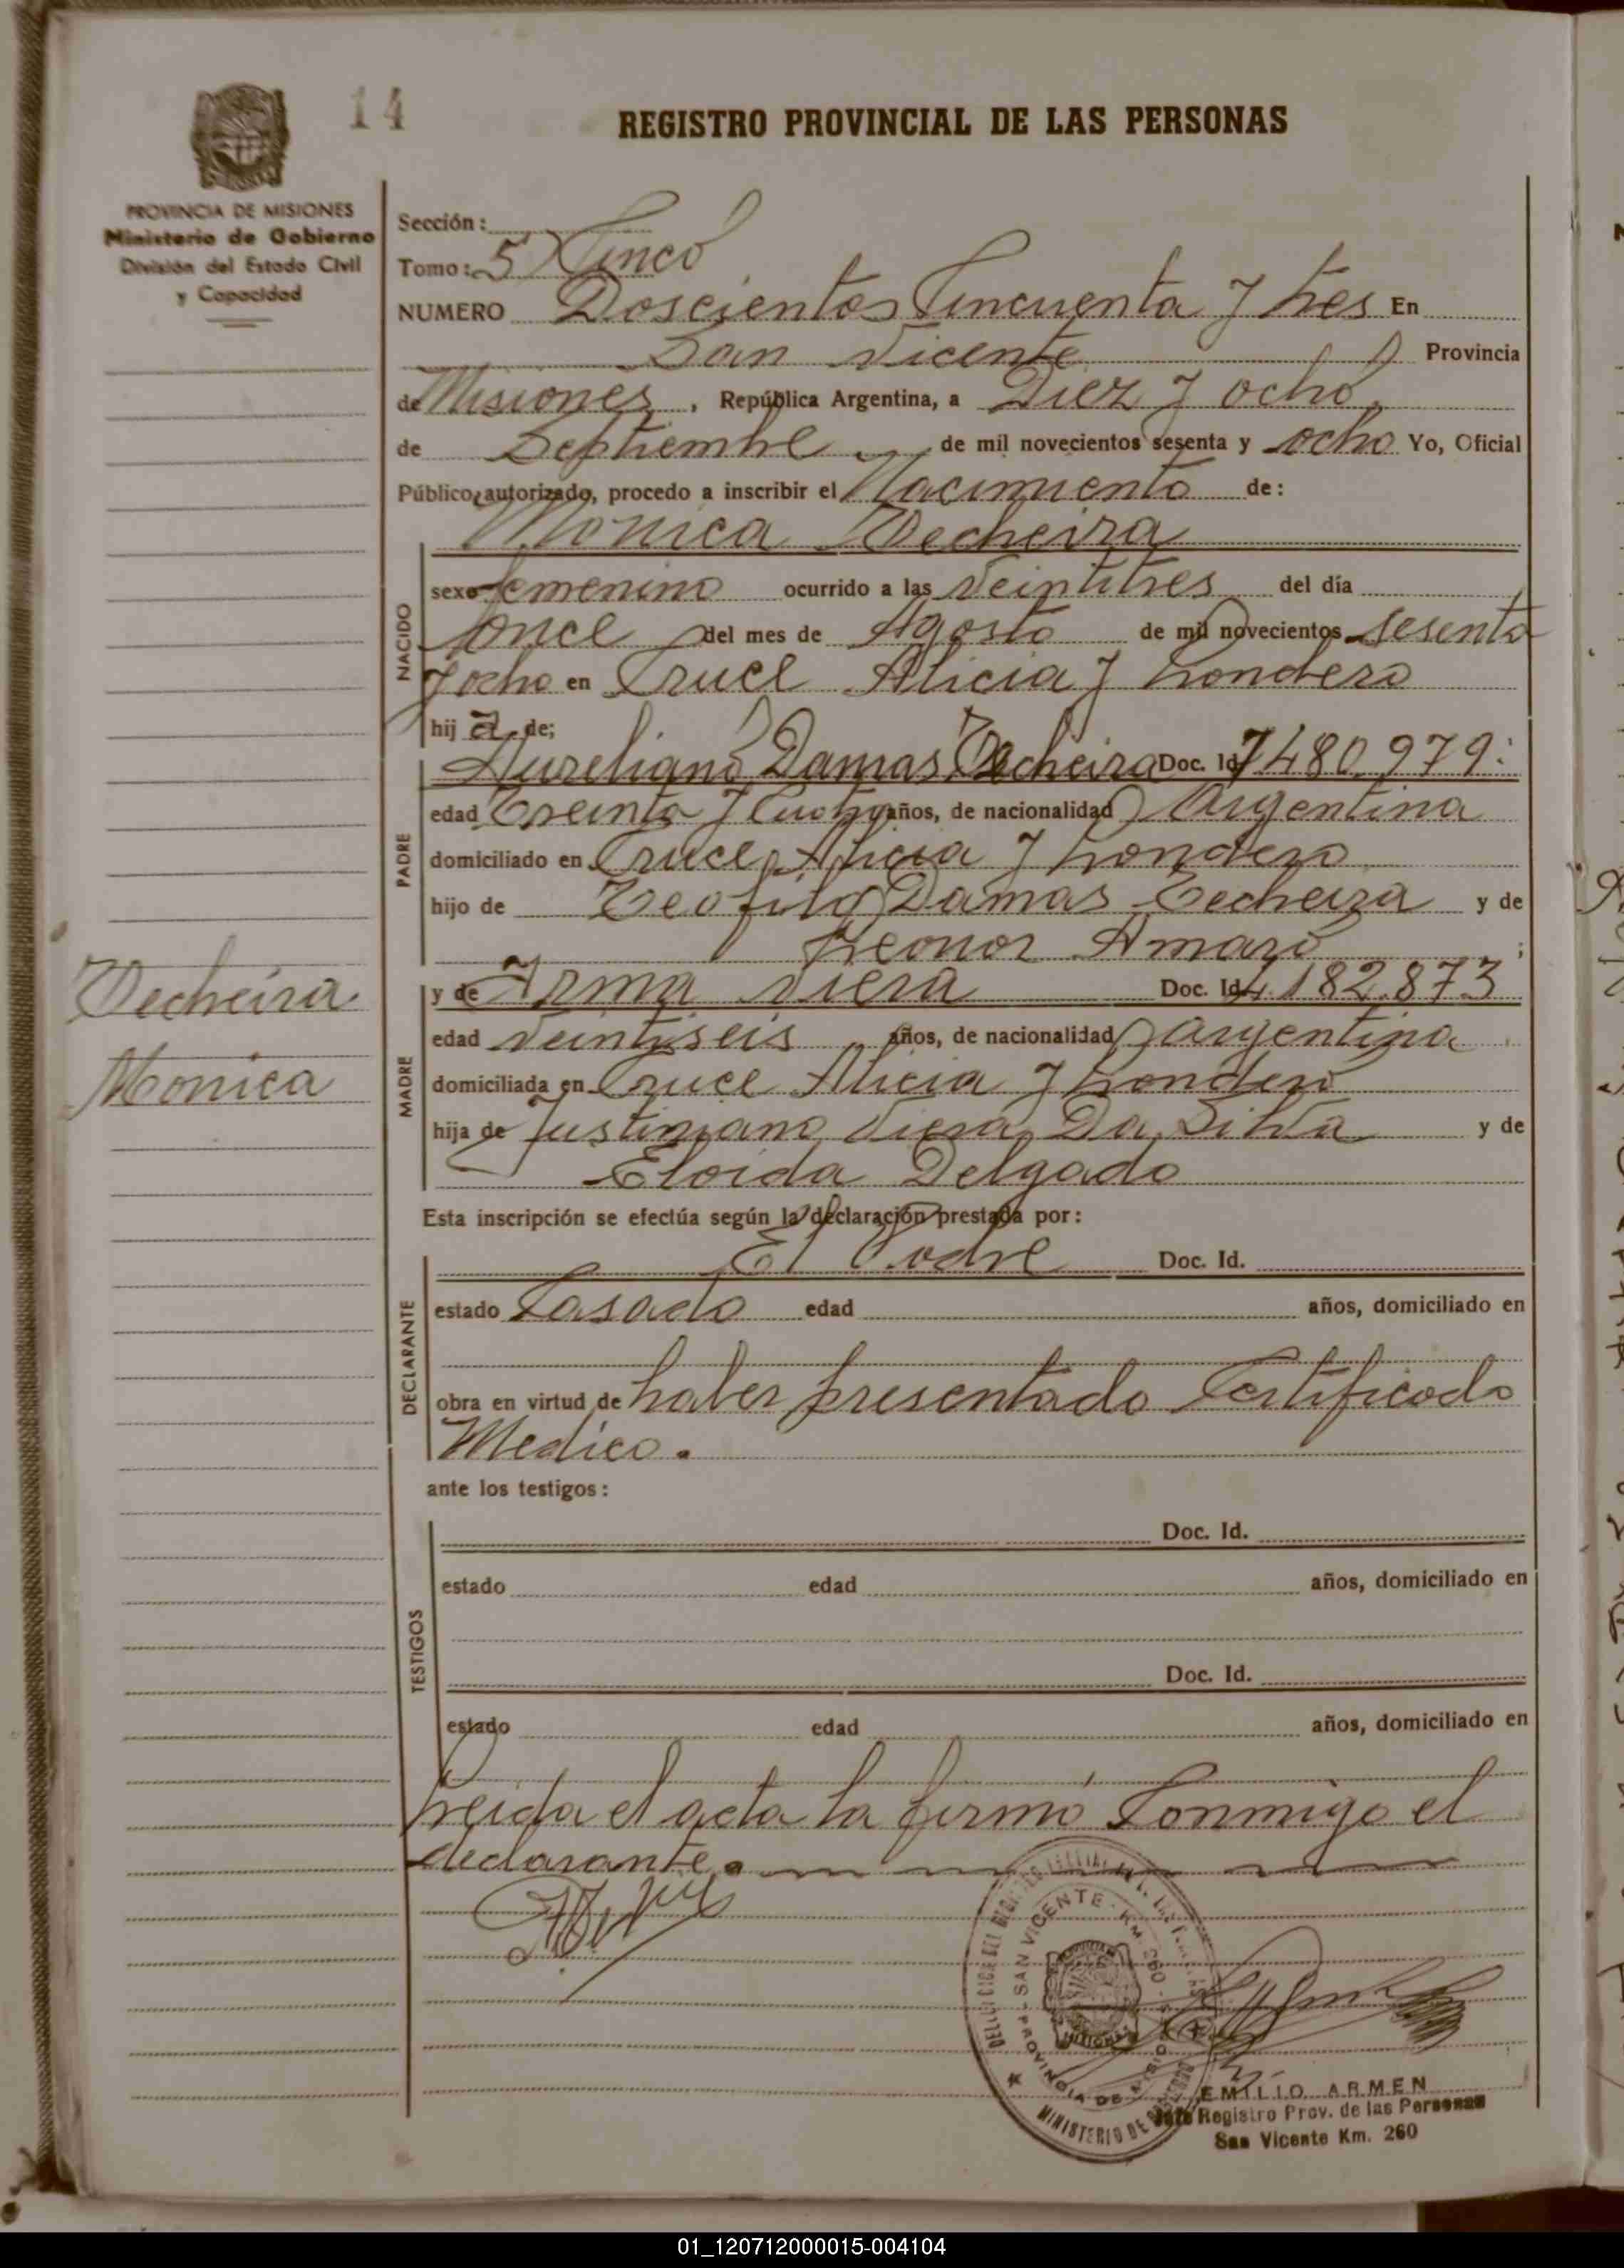 14
REGISTRO PROVINCIAL DE LAS PERSONAS
PROVINCIA DE MISIONES
Ministerio de Gobierno
División del Estado Civil
y Capacidad
Sección:
Tomo: 5 Cinco
NUMERO Doscientos Cincuenta y tres En
San Vicente Provincia
de Misiones, República Argentina, a Diez y ocho
de Septiembre de mil novecientos sesenta y ocho Yo, Oficial
Público autorizado, procedo a inscribir el Nacimiento de:
Monica Techeira
NACIDO
sexo femenino ocurrido a las veintitres del día
once del mes de Agosto de mil novecientos sesenta
y ocho en Cruce Alicia y Londero
hij a de;
PADRE
Aureliano Damas Techeira Doc. Id 7480.979:
edad Treinta y Cuatro años, de nacionalidad Argentina
domiciliado en Cruce Alicia y Londero
hijo de Teofilo Damas Techeira y de
Leonor Amaro ;
Techeira
Monica
MADRE
y de Irma Viera Doc. Id 4.182.873
edad veintiseis años, de nacionalidad argentina
domiciliada en Cruce Alicia y Londero
hija de Justiniano Viera Da Silva y de
Eloida Delgado
Esta inscripción se efectúa según la declaración prestada por:
DECLARANTE
El Padre Doc. Id.
estado Casado edad años, domiciliado en
obra en virtud de haber presentado Certificado
Medico.
ante los testigos:
TESTIGOS
Doc. Id.
estado edad años, domiciliado en
Doc. Id.
estado edad años, domiciliado en
Leida el acta la firmó Conmigo el
declarante.
SAN VICENTE - KM 260
PROVINCIA DE MISIONES
MINISTERIO DE GOBIERNO
EMILIO ARMEN
Jefe Registro Prov. de las Personas
San Vicente Km. 260
01_120712000015-004104